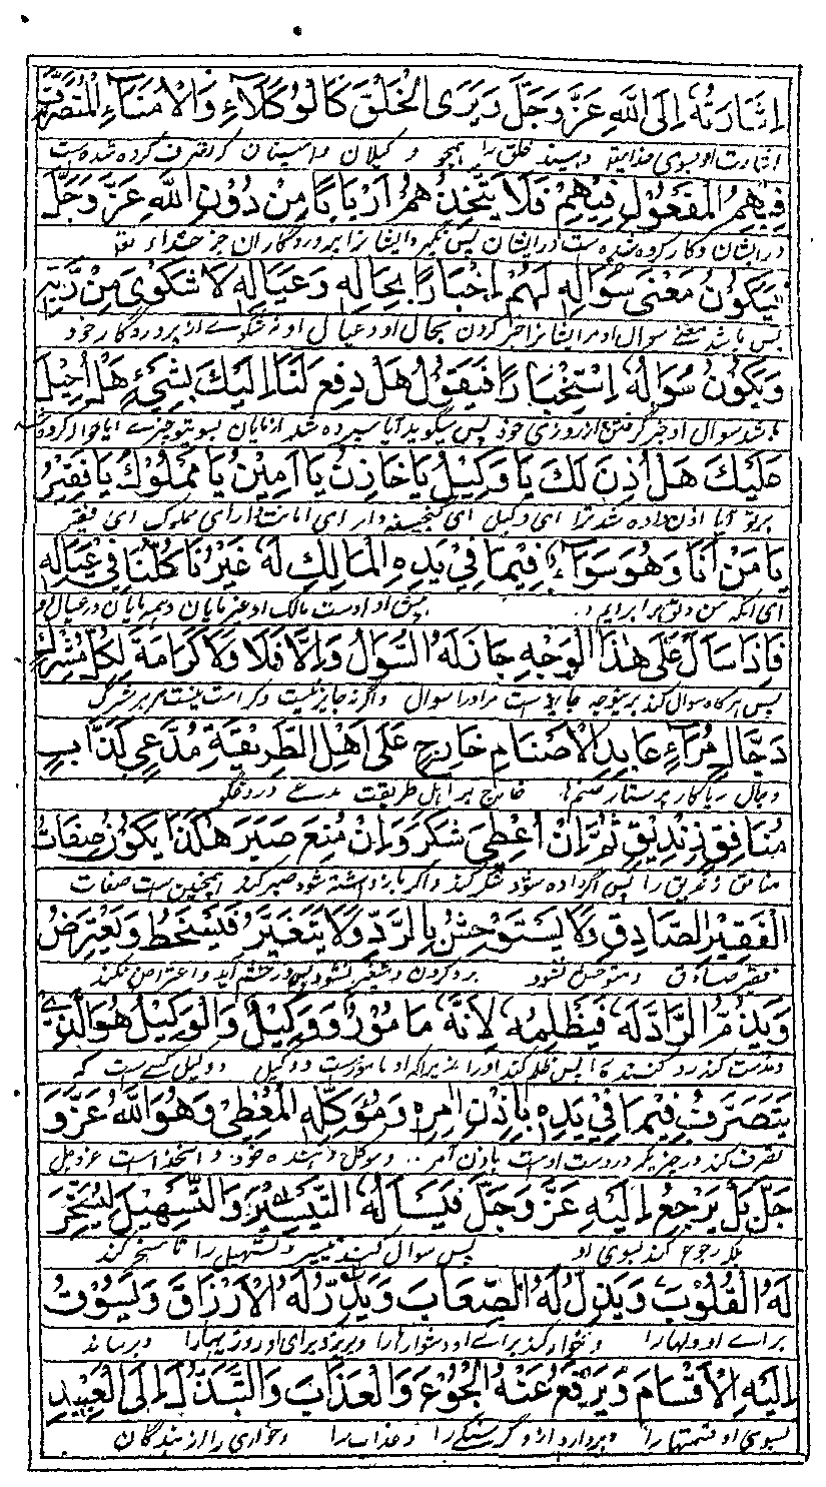 اِشَارَتُهٗ اِلَى اللّٰهِ عَزَّ وَجَلَّ وَيَرَى الْخَلْقَ كَالْوُكَلَآءِ وَالْاُمَنَآءِ الْمُتَصَرَّفِ
اشارت او بسوی خدایتعالی و بیند خلق را همچو وکیلان و امینان که تصرف کرده شده است
فِيْهِمُ الْمَفْعُوْلِ فِيْهِمْ فَلَا يَتَّخِذُهُمْ اَرْبَابًا مِنْ دُوْنِ اللّٰهِ عَزَّ وَجَلَّ
در ایشان و کار کرده شده است در ایشان پس نگیرد ایشانرا پروردگاران جز خدای
فَيَكُوْنُ مَعْنٰى سُؤَالِهٖ لَهُمْ اِخْبَارًا بِحَالِهٖ وَعِيَالِهٖ لَا شَكْوٰى مِنْ رَّبِّهٖ
پس باشد معنی سوال او مر ایشانرا خبر کردن بحال او و عیال او نه شکوے از پروردگار خود
وَيَكُوْنُ سُؤَالُهٗ اِسْتِخْبَارًا فَيَقُوْلُ هَلْ دُفِعَ لَنَا اِلَيْكَ بِشَيْءٍ هَلْ اُحِيْلَ
باشد سوال او خبر گرفتن از روزی خود پس میگوید آیا سپرده شد از مایان بسوی تو چیزے آیا حواله کرده
عَلَيْكَ هَلْ اُذِنَ لَكَ يَا وَكِيْلُ يَا خَازِنُ يَا اَمِيْنُ يَا مَمْلُوْكُ يَا فَقِيْرُ
بر تو آیا اذن داده شد ترا ای وکیل ای گنجینه دار ای امانت دار ای مملوک ای فقیر
يَا مَنْ اَنَا وَهُوَ سَوَآءٌ فِيْمَا فِيْ يَدِهٖ الْمَالِكِ لَهٗ غَيْرُنَا كُلُّنَا فِيْ عِيَالِهٖ
ای آنکه من و او برابریم در پیش او اوست مالک او غیر مایان و همه مایان در عیال او
فَاِذَا سَاَلَ عَلٰى هٰذَا الْوَجْهِ جَازَ لَهُ السُّؤَالُ وَاِلَّا فَلَا وَلَا كَرَامَةَ لِكُلِّ مُشْرِكٍ
پس هرگاه سوال کند برینوجه جایز است مر او را سوال و اگر نه جایز نیست و کرامت نیست مر هر مشرک
دَجَّالٍ مُرَآءٍ عَابِدِ الْاَصْنَامِ خَارِجٍ عَلٰى اَهْلِ الطَّرِيْقَةِ مُدَّعِيْ كَذَّابٍ
دجال ریاکار پرستار صنمها خارج بر اهل طریقت مدعی دروغگو
مُنَافِقٍ زِنْدِيْقٍ ثُمَّ اِنْ اُعْطِيَ شَكَرَ وَاِنْ مُنِعَ صَبَرَ هٰكَذَا يَكُوْنُ صِفَاتُ
منافق زندیق را پس اگر داده شود شکر کند و اگر باز داشته شود صبر کند همچنین است صفات
الْفَقِيْرِ الصَّادِقِ وَلَا يَسْتَوْحِشُ بِالرَّدِّ وَلَا يَتَغَيَّرُ فَيَسْخَطُ وَيَعْتَرِضُ
فقیر صادق و متوحش نشود برد کردن و متغیر نشود پس در خشم آید و اعتراض نکند
وَيَذُمُّ الرَّادَّ لَهٗ فَيَظْلِمُهٗ لِاَنَّهٗ مَأْمُوْرٌ وَوَكِيْلٌ وَالْوَكِيْلُ هُوَ الَّذِيْ
و مذمت کند رد کننده را پس ظلم کند او را زیراکه او مامور است و وکیل و وکیل کسے است که
يَتَصَرَّفُ فِيْمَا فِيْ يَدِهٖ بِاِذْنِ اٰمِرِهٖ وَمُوَكِّلِهٖ الْمُعْطِيْ وَهُوَ اللّٰهُ عَزَّ وَ
تصرف کند در چیزیکه در دست اوست باذن آمر و موکل دهنده خود و آن خداست عزوجل
جَلَّ بَلْ يَرْجِعُ اِلَيْهِ عَزَّ وَجَلَّ فَيَسْاَلُهُ التَّيْسِيْرَ وَالتَّسْهِيْلَ لِيُسَخِّرَ
بلکه رجوع کند بسوی او پس سوال کند تیسیر و تسهیل را تا مسخر کند
لَهُ الْقُلُوْبَ وَيُذِلُّ لَهُ الصِّعَابَ وَيُدِرُّ لَهُ الْاَرْزَاقَ وَيَسُوْقُ
براے او دلها را و خوار کند براے او دشوارها را و بریزد برای او روزیها را و برساند
اِلَيْهِ الْاَقْسَامَ وَيَرْفَعُ عَنْهُ الْجُوْعَ وَالْعَذَابَ وَالتَّبَذُّلَ اِلَى الْعَبِيْدِ
بسوی او قسمتها را و بردارد از و گرسنگے را و عذاب را و خواری را از بندگان